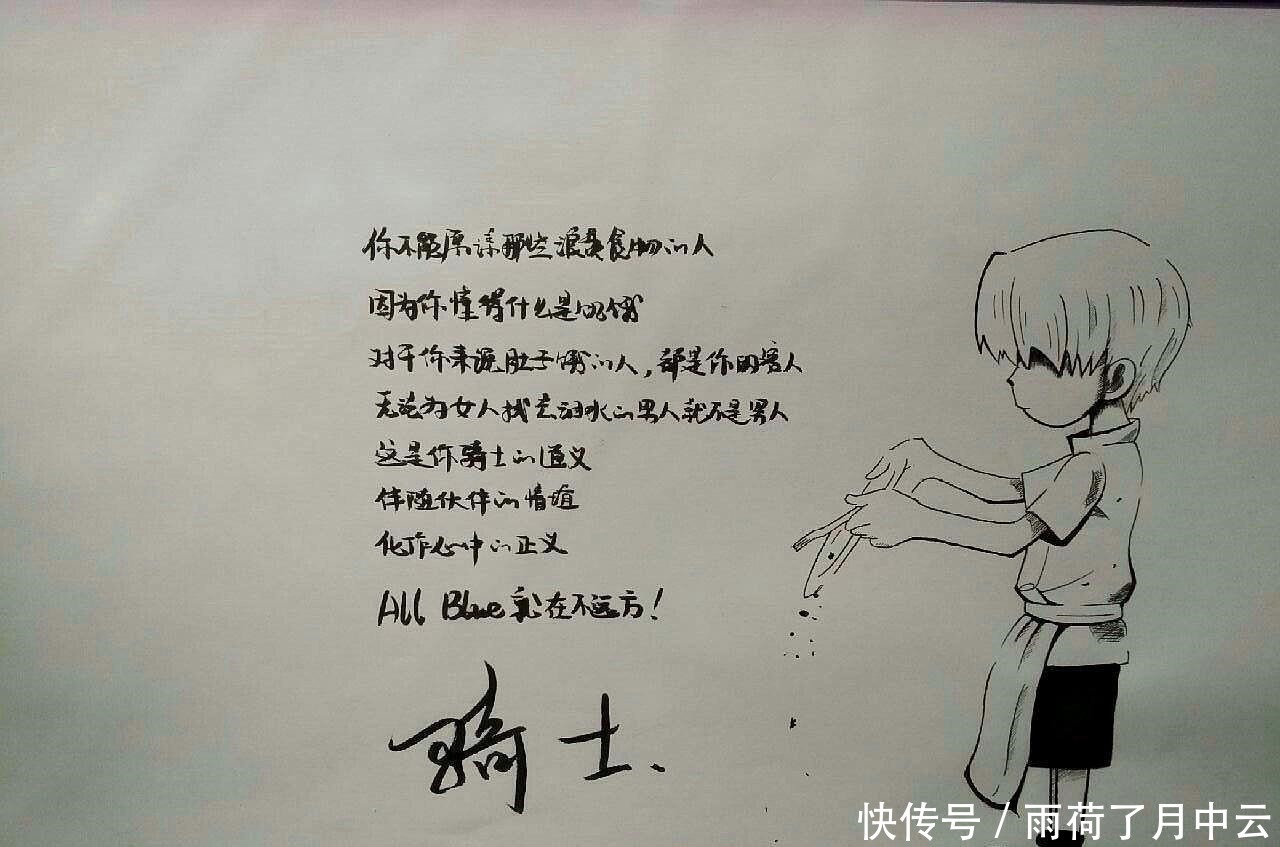 你不能原谅那些浪费食物的人
因为你懂得什么是饥饿
对于你来说肚子饿的人，都是你的客人
无论为女人找去泪水的男人就不是男人
这是你骑士的道义
伴随伙伴的情谊
化作心中的正义
All Blue就在不远方！
骑士、
快传号 / 雨荷了月中云